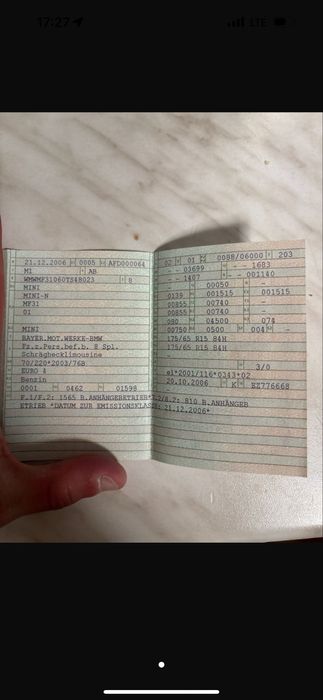 17:27
LTE
21.12.2006 0005 AFD000064
MI AB
WMWMF31060TS48023 8
MINI
MINI-N
MF31
01
MINI
BAYER.MOT.WERKE-BMW
Fz.z.Pers.bef.b. 8 Spl.
Schräghecklimousine
70/220*2003/76B
EURO 4
Benzin
0001 0462 01598
02 01 0088/06000 203
- - 03699 - - 1683
- - 1407 - -001140
- 00050 -
0139 001515 001515
00855 00740 -
00855 00740 -
080 04500 074
00750 0500 004 -
175/65 R15 84H
175/65 R15 84H
-
3/0
e1*2001/116*0343*02
20.10.2006 K BZ776668
F.1/F.2: 1565 B.ANHÄNGEBETRIEB*7.2/8.2: 810 B.ANHÄNGEB
ETRIEB *DATUM ZUR EMISSIONSKLASSE: 21.12.2006*